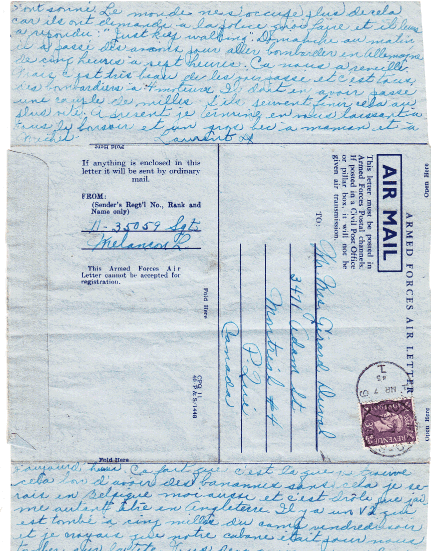 sont sonné. Le monde ne s'occupe plus de cela
car ils ont demandé à la police
a répondu: "Just keep walking" Dimanche au matin
il a passé des avions pour aller bombarder en Allemagne
de cinq heures à sept heures. Ca nous a réveillé
mais c'est très beau de les voir passé et c'est tous
des bombardiers à 4 moteurs. Il doit en avoir passé
une couple de milles. S'ils peuvent finir cela au
plus vite. A present je termine en vous laissant à
tous le bonsoir et un gros bec à maman et à
Laurent
Fold Here
If anything is enclosed in this
letter it will be sent by ordinary
mail.
FROM:
(Sender's Regt'l No., Rank and
Name only)
D-35059 Sgt.
Melancon L
This Armed Forces Air
Letter cannot be accepted for
registration.
Fold Here
ARMED FORCES AIR LETTER
AIR MAIL
This letter must be posted in
Armed Forces Postal channels.
If posted in a Civil Post Office
or pillar box, it will not be
given air transmission.
TO:
Mr Mrs Gérard Duval
3471 Adam St
Montreal
P. Que
Canada
Open Here
Open Here
REVENUE
Fold Here
aujourd'hui. Ca fait que c'est le
cela loin d'avoir des bananes sans cela je se
rais en Belgique moi aussi et c'est drôle que j'ai
me autant être en Angleterre. Il y a un V2 qui
est tombé à cinq milles du camp vendredi soir
et je croyais que notre cabane était pour nous